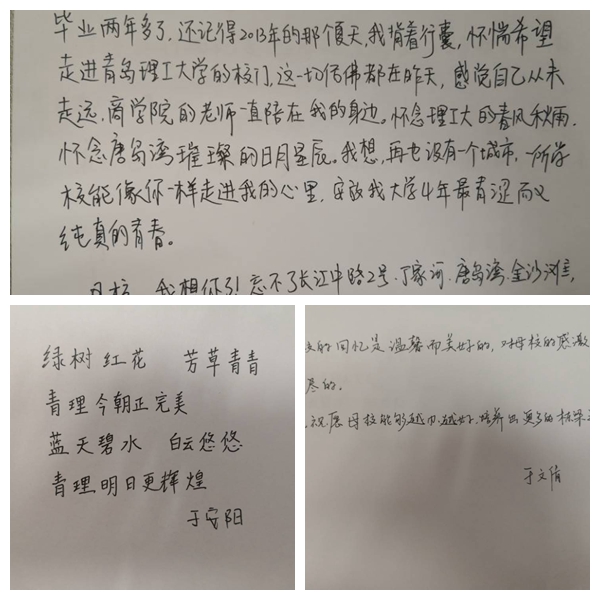 毕业两年多了,还记得2013年的那个夏天,我背着行囊,怀惴希望
走进青岛理工大学的校门,这一切仿佛都在昨天,感觉自己从未
走远,商学院的老师一直陪在我的身边。怀念理工大的春风秋雨,
怀念唐岛湾璀璨的日月星辰。我想,再也没有一个城市,一所学
校能像你一样走进我的心里,安放我大学4年最青涩而又
纯真的青春。
母校,我想你了!忘不了长江中路2号,丁家河,唐岛湾,金沙滩,
绿树红花 芳草青青
青理今朝正完美
蓝天碧水 白云悠悠
青理明日更辉煌
于安阳
的回忆是温馨而美好的,对母校的感激
尽的。
祝愿母校能够越办越好,培养出更多的栋梁
于文倩